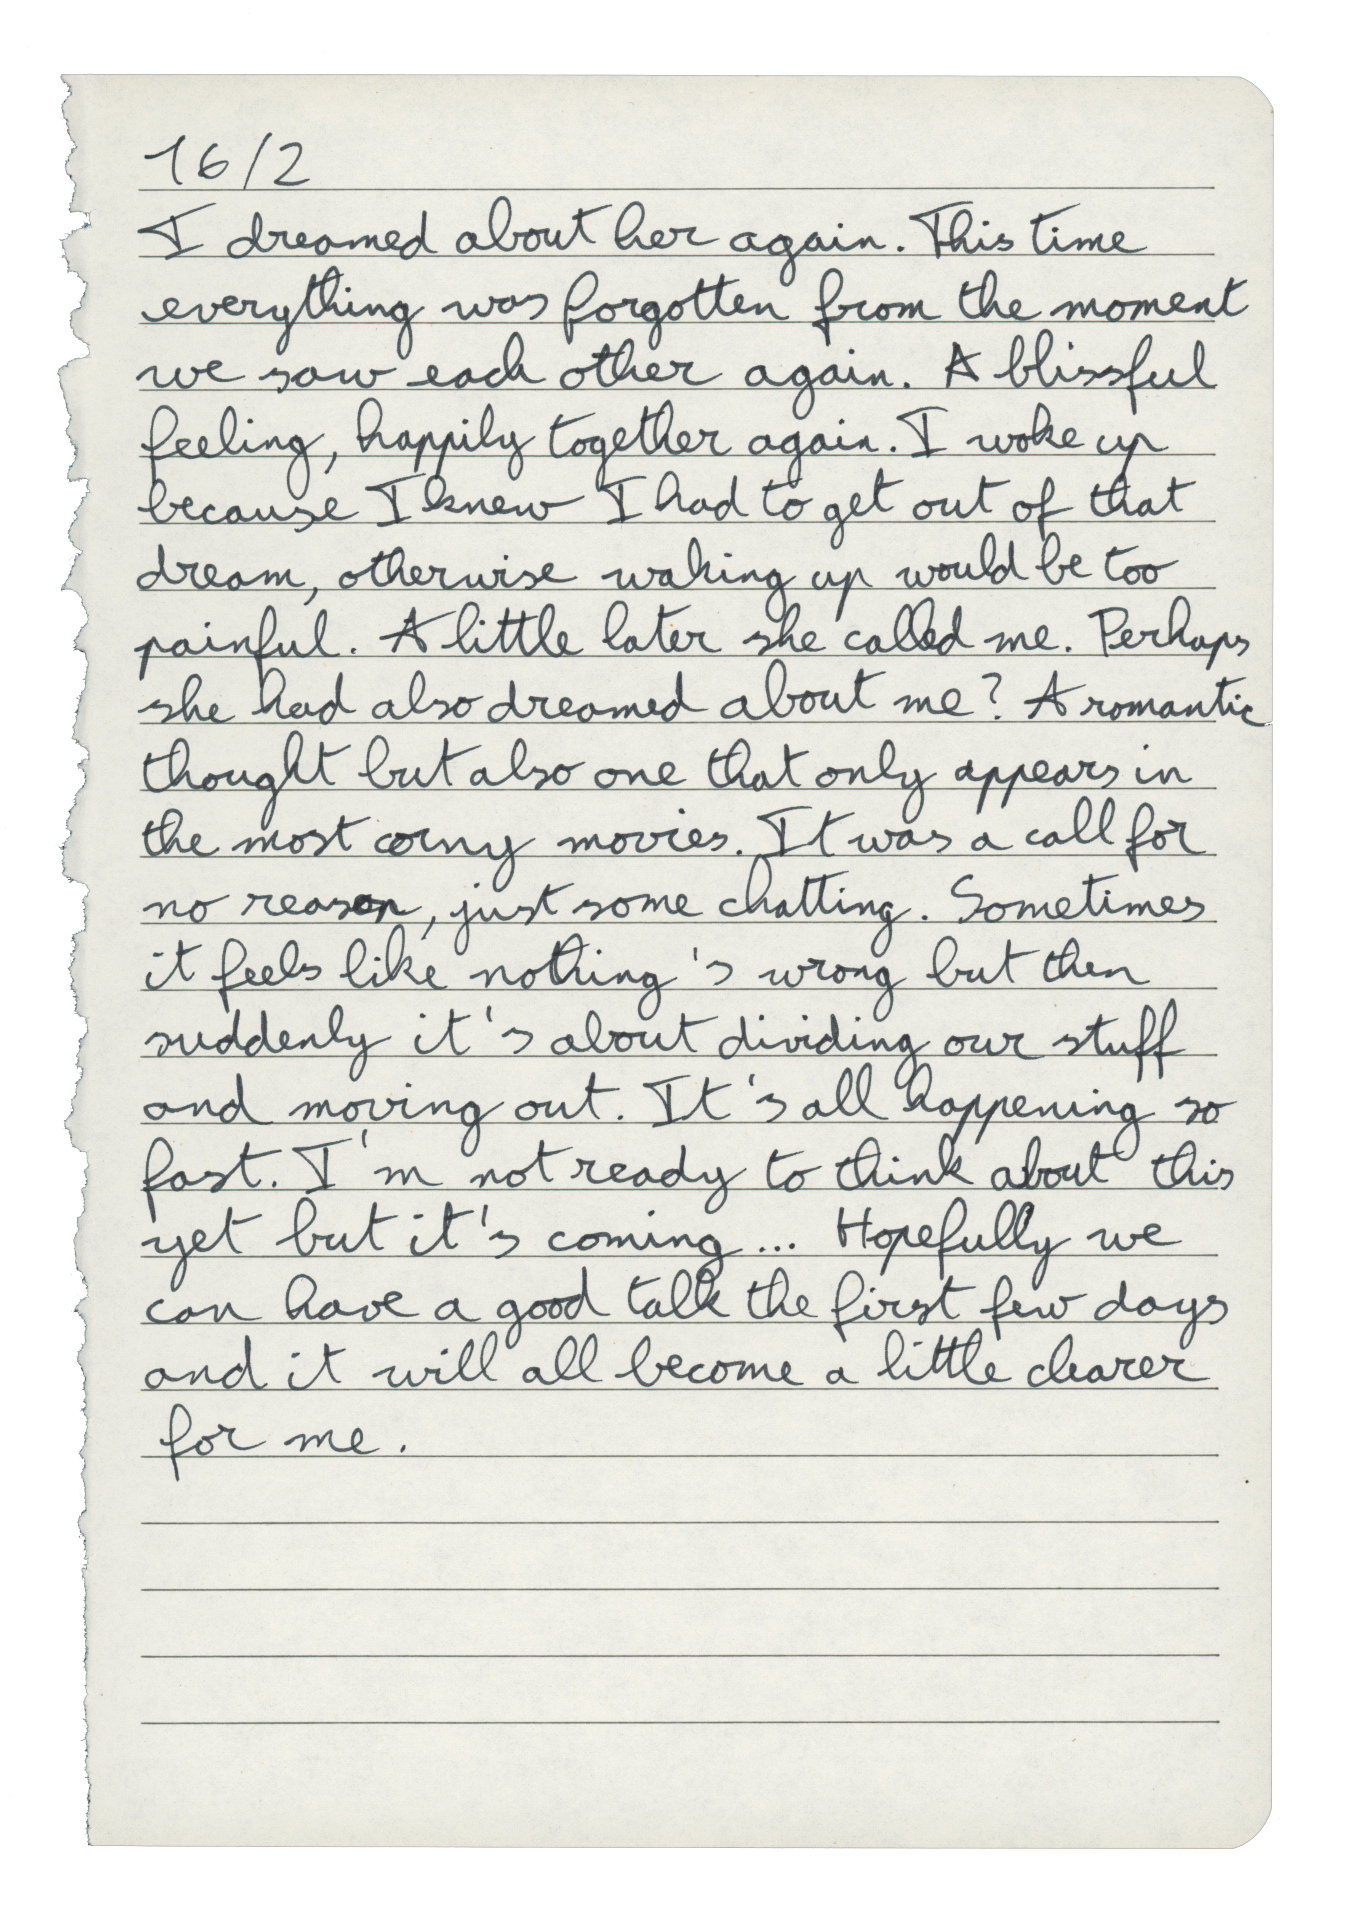 16/2
I dreamed about her again. This time
everything was forgotten from the moment
we saw each other again. A blissful
feeling, happily together again. I woke up
because I knew I had to get out of that
dream, otherwise waking up would be too
painful. A little later she called me. Perhaps
she had also dreamed about me? A romantic
thought but also one that only appears in
the most corny movies. It was a call for
no reason, just some chatting. Sometimes
it feels like nothing's wrong but then
suddenly it's about dividing our stuff
and moving out. It's all happening so
fast. I'm not ready to think about this
yet but it's coming... Hopefully we
can have a good talk the first few days
and it will all become a little clearer
for me.